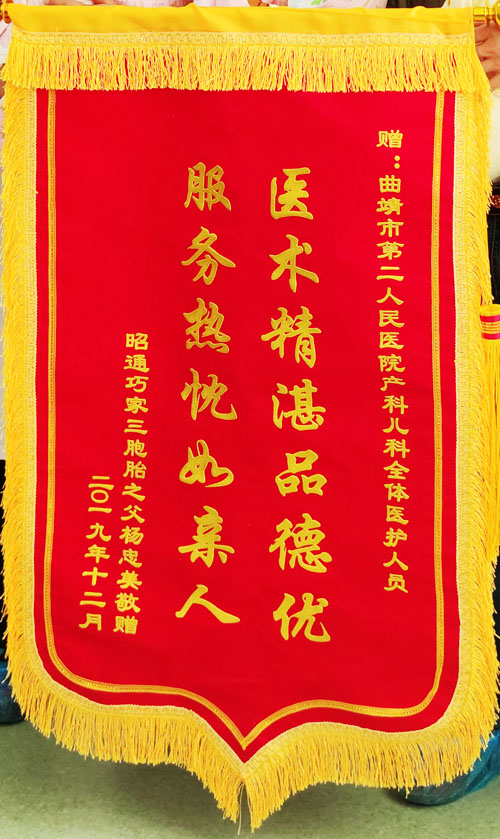 赠：曲靖市第二人民医院产科儿科全体医护人员
医术精湛品德优
服务热忱如亲人
昭通巧家三胞胎之父杨忠美敬赠
二〇一九年十二月